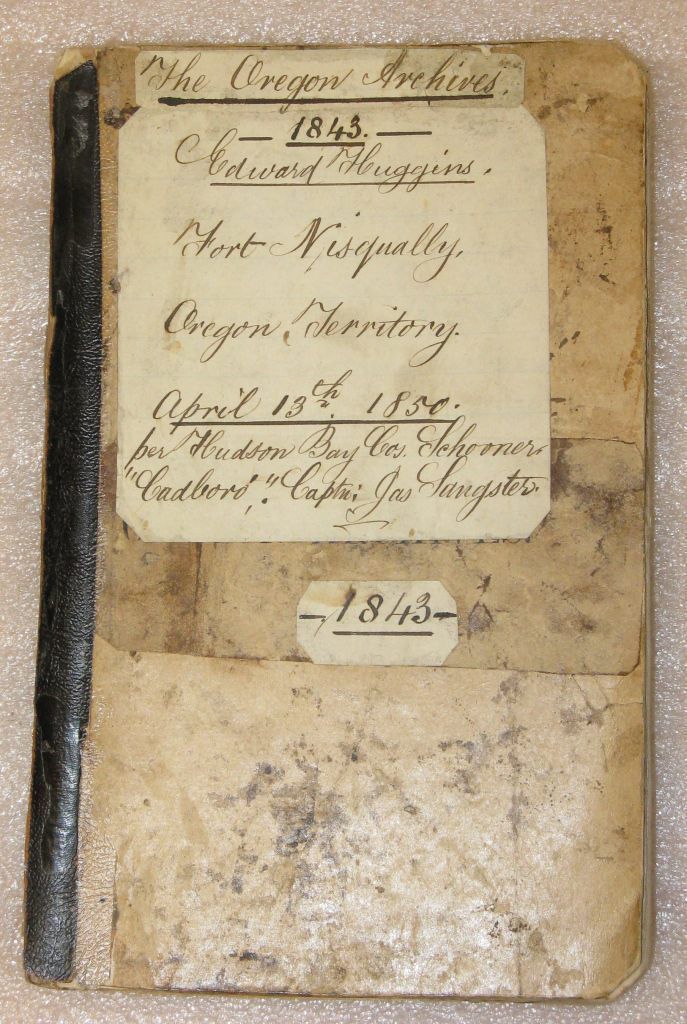 The Oregon Archives.
— 1843. —
Edward Huggins.
Fort Nisqually,
Oregon Territory.
April 13th. 1850.
per Hudson Bay Cos. Schooner,
"Cadboro'," Captn: Jas Sangster.
- 1843 -